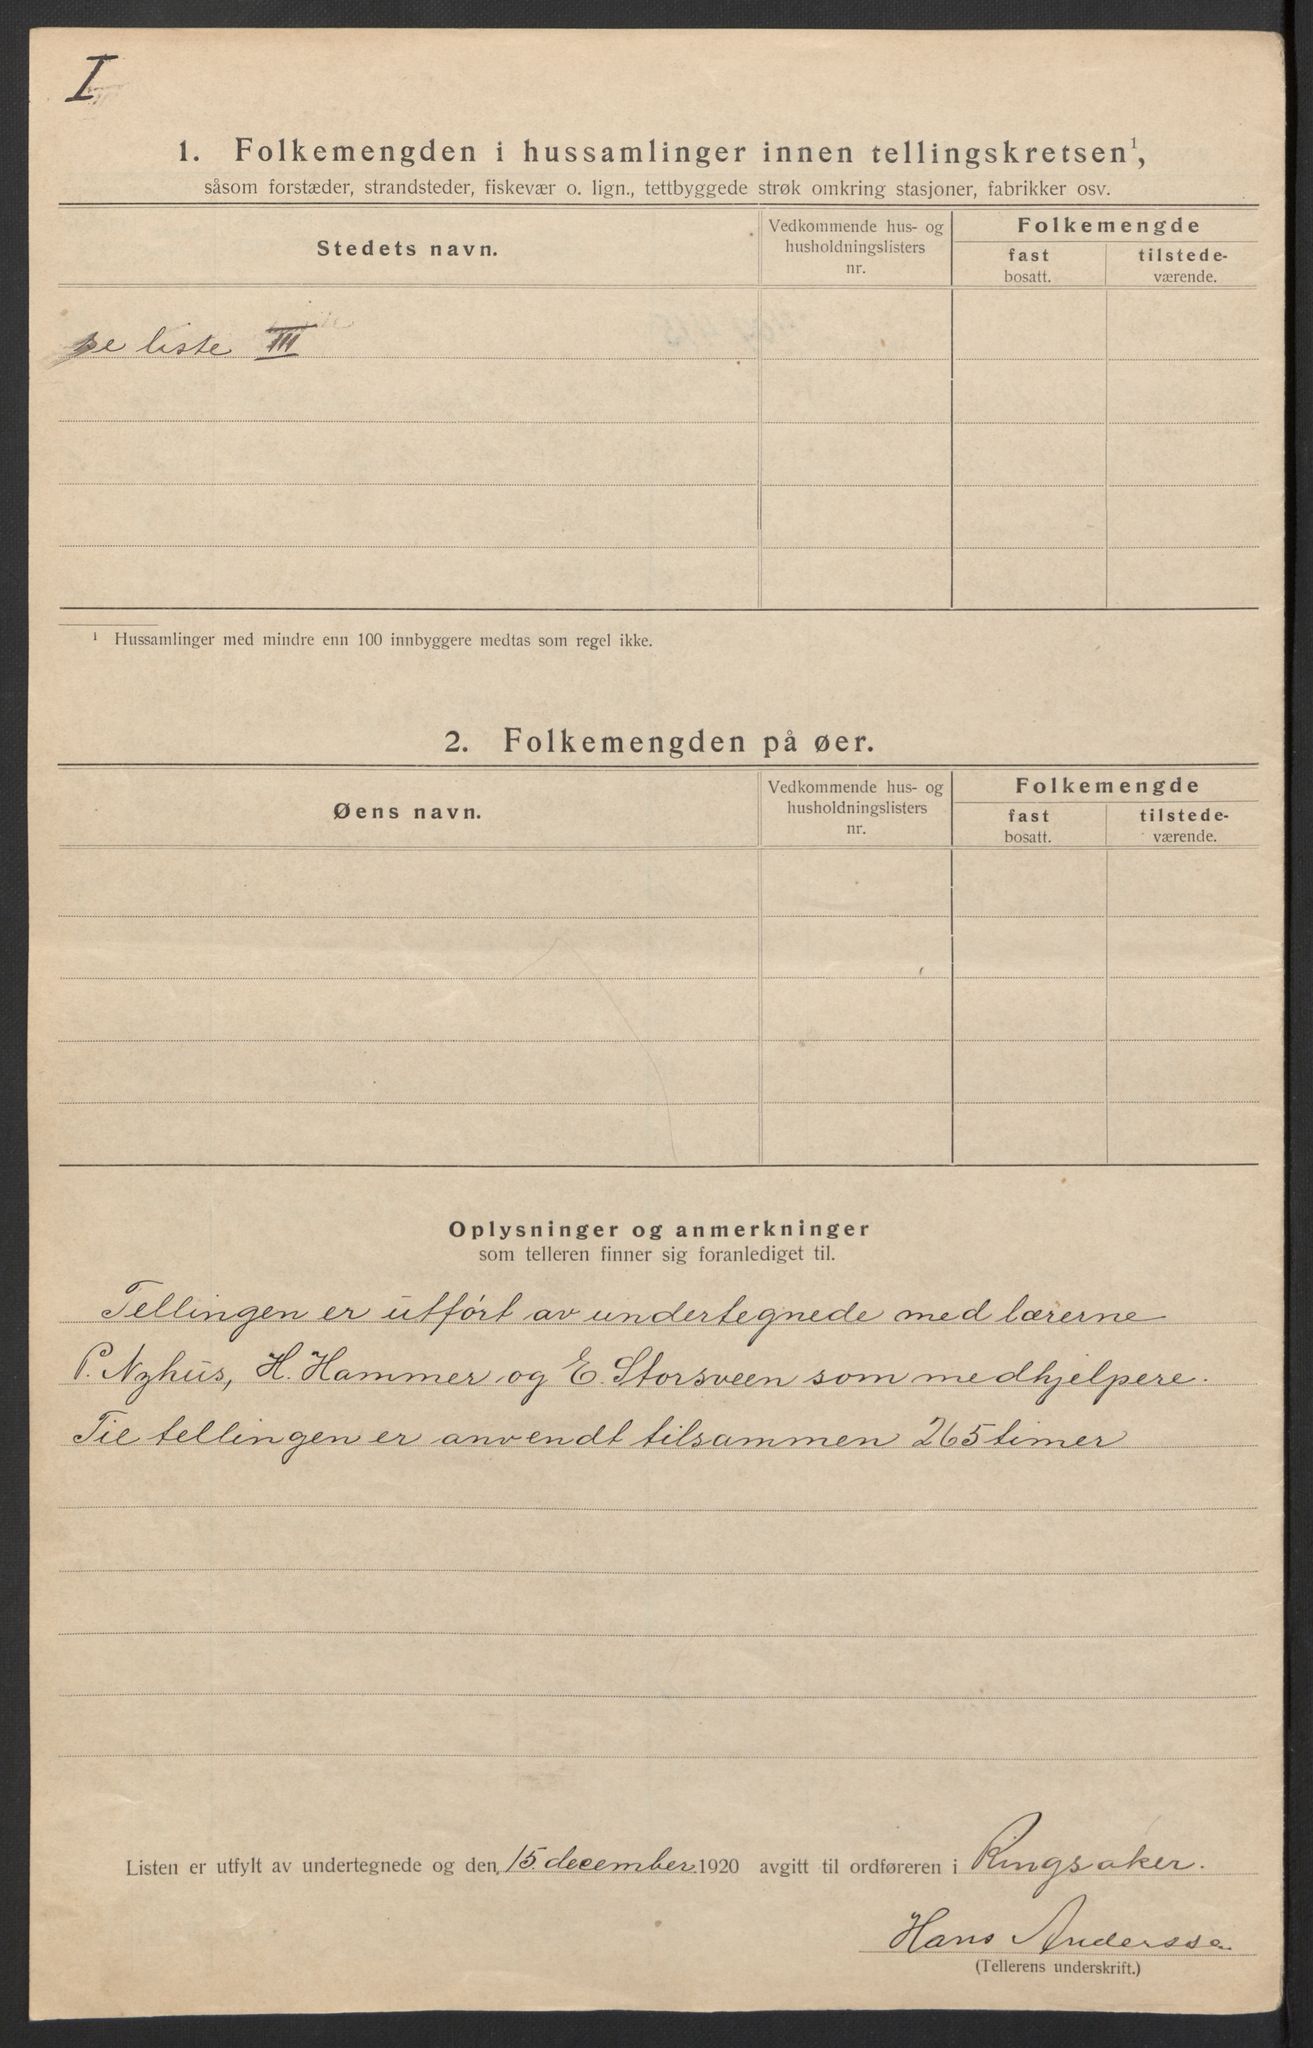 I
1. Folkemengden i hussamlinger innen tellingskretsen¹,
såsom forstæder, strandsteder, fiskevær o. lign., tettbyggede strøk omkring stasjoner, fabrikker osv.
Stedets navn.
Vedkommende hus- og
husholdningslisters
nr.
Folkemengde
fast
bosatt.
tilstede-
værende.
se liste III
¹ Hussamlinger med mindre enn 100 innbyggere medtas som regel ikke.
2. Folkemengden på øer.
Øens navn.
Vedkommende hus- og
husholdningslisters
nr.
Folkemengde
fast
bosatt.
tilstede-
værende.
Oplysninger og anmerkninger
som telleren finner sig foranlediget til.
Tellingen er utført av undertegnede med lærerne
P. Nyhus, H. Hammer og E. Storsveen som medhjelpere.
Til tellingen er anvendt tilsammen 265 timer
Listen er utfylt av undertegnede og den 15 december 1920 avgitt til ordføreren i Ringsaker.
Hans Anderssen
(Tellerens underskrift.)